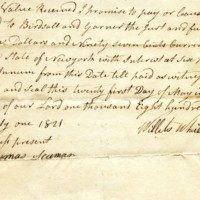 Value Received I promise to pay or cause
To Birdsall and Garner the Just and full
Dollars and Ninety Seven Cents Curren
State of Newyork with Interest at Six
annum from this Date till paid as witness
and Seal this twenty first Day of May in
of our Lord one thousand Eight hundre
ty one 1821
Willets Whit
present
mas Seaman